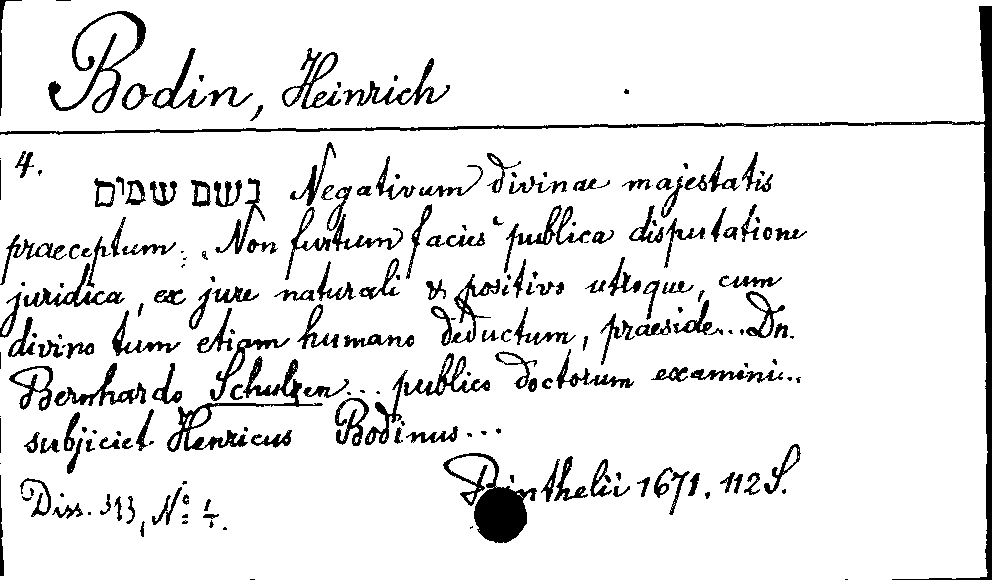 Bodin, Heinrich
4.
בשם שמים Negativum divinae majestatis
praeceptum: „Non furtum facies“ publica disputatione
juridica, ex jure naturali & positivo utroque, cum
divino tum etiam humano deductum, praeside... Dn.
Bernhardo Schulzen... publico doctorum examini...
subjiciet Henricus Bodinus...
Rinthelii 1671. 112 S.
Diss. 313, No: 4.